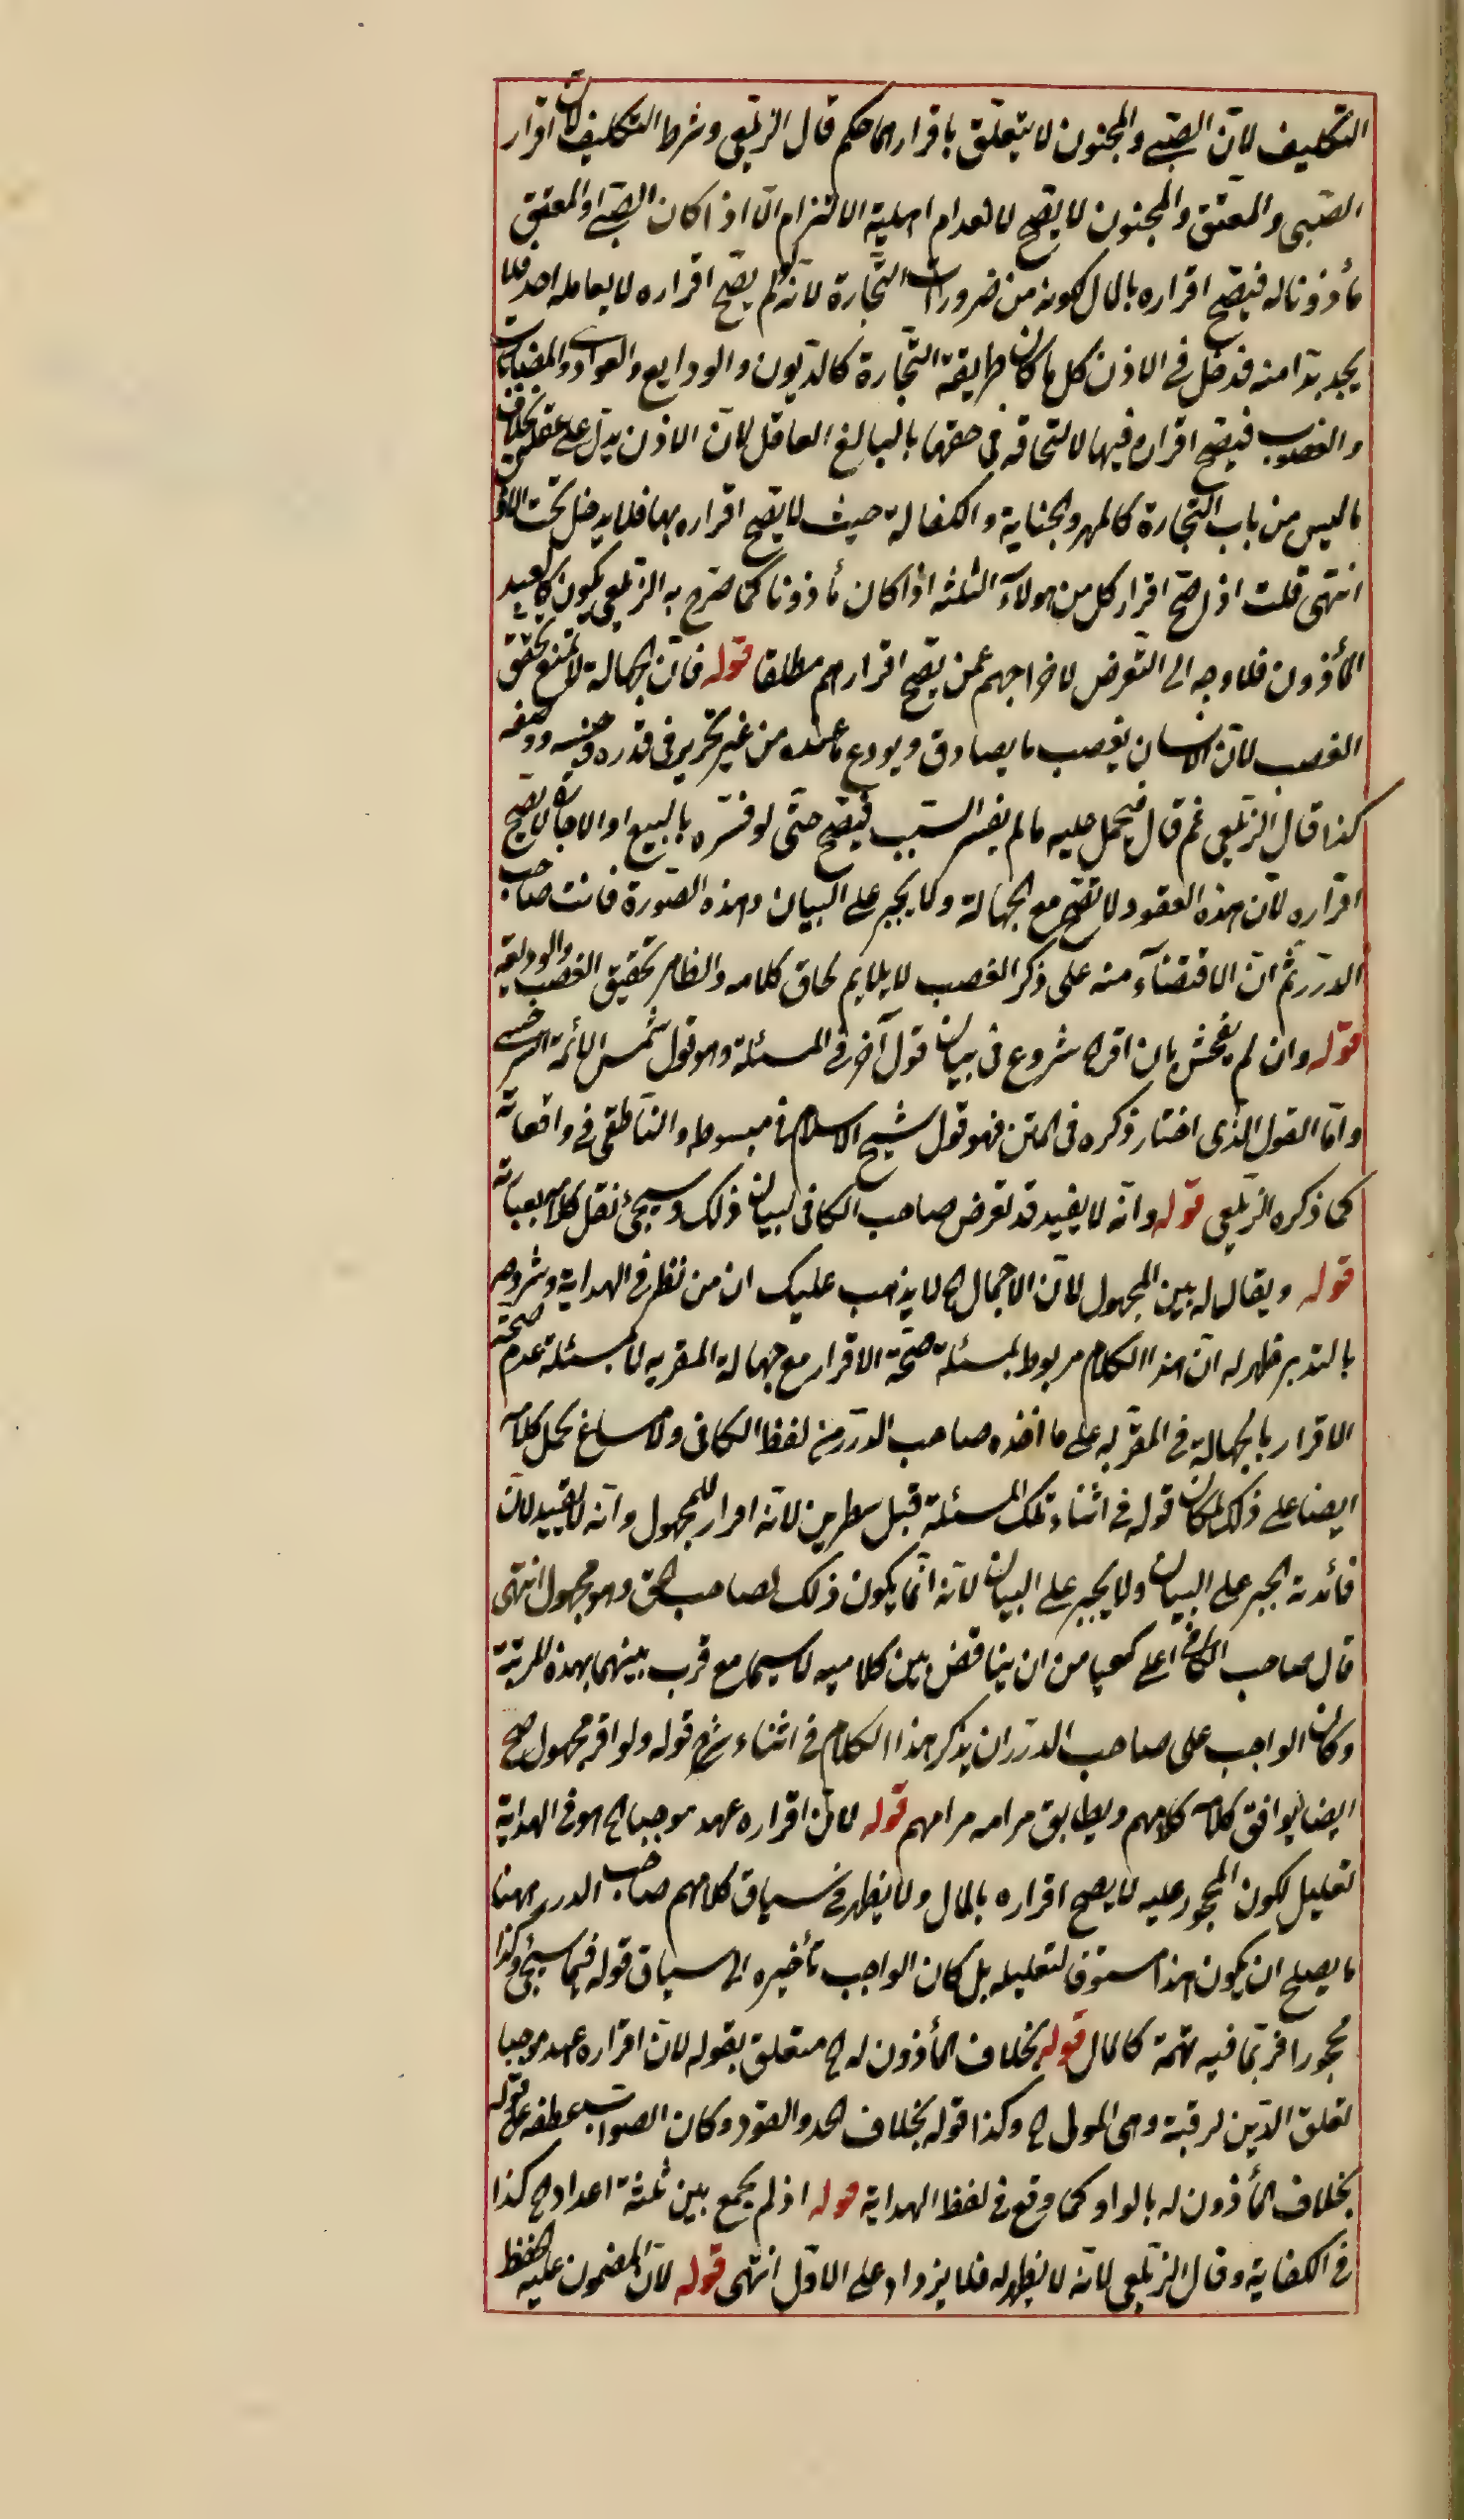 التكليف لانّ الصّبي والمجنون لا يتعلّق باقرارهما حكم قال الزيلعي وشرط التكليف لانّ اقرار
الصّبي والمعتق والمجنون لا يصّح لانعدام اهلية الالتزام الّا اذا كان الصّبي او المعتق
مأذونا له فيصّح اقراره بالمال لكونه من ضرورات التّجارة لانّه لو لم يصّح اقراره لا يعامله احد فلا
يجد بدّا منه فدخل في الاذن كل ما كان طريقه التّجارة كالدّيون والودايع والعوارى والمضاربات
والغصوب فيصّح اقراره فيها لالتحاقه في حقها بالبالغ العاقل لانّ الاذن يدلّ على عقله بخلاف
ما ليس من باب التّجارة كالمهر والجناية والكفالة حيث لا يصّح اقراره بها فلا يدخل تحت الاذن
انتهى قلت اذا صّح اقرار كل من هولآء الثلثه اذا كان مأذونا كما صّرح به الزيلعي يكون كالعبيد
المأذون فلا وجه الى التّعرض لاخراجهم عمن يصّح اقرارهم مطلقا قوله فانّ الجهالة لا تمنع تحقق
الغصب لانّ الانسان يغصب ما يصادق ويودع ما عنده من غير تحرير في قدره وجنسه ووصفه
كذا قال الزيلعي ثم قال فيحمل عليه ما لم يفسر السّبب فيصّح حتّى لو فسّره بالبيع او الاجارة لا يصّح
اقراره لانّ هذه العقود لا تصّح مع الجهالة ولا يجبر على البيان وهذه الصّورة فاتت صاحب
الدّرر ثمّ انّ الاقتضآء منه على ذكر الغصب لا يلايم لحاق كلامه والظاهر تحقيق الغصب والوديعة
قوله وان لم يفحش بان اقر الخ شروع في بيان قول آخر في المسئلة وهو قول شمس الائمة السّرخسي
وامّا القول الّذى اختار ذكره في المتن فهو قول شيخ الاسلام في مبسوطه والنّاطفى في واقعاته
كما ذكره الزيلعي قوله وانّه لا يفيد قد تعرض صاحب الكافي لبيان ذلك وسيجئ نقل كلامه بعبارته
قوله ويقال له بين المجهول لانّ الاجمال الخ لا يذهب عليك ان من نظر في الهداية وشروحه
بالتدبر ظهر له انّ هذا الكلام مربوط بمسئلة صّحة الاقرار مع جهالة المقر به لا بمسئلة عدم صحّة
الاقرار بالجهالة في المقّر له على ما اخذه صاحب الدّرر من لفظ الكافي ولا مساغ لحمل كلامه
ايضا على ذلك لمكان قوله في اثناء تلك المسئلة قبل سطرين لانّه اقرار للمجهول وانّه لا يفيد لانّ
فائدته الجبر على البيان ولا يجبر على البيان لانّه انّما يكون ذلك لصاحب الحق وهو مجهول انتهى
قال صاحب الكافي اعلى كعبا من ان يناقض بين كلاميه لا سيما مع قرب بينهما بهذه المرتبة
وكان الواجب على صاحب الدّرر ان يذكر هذا الكلام في اثناء شرح قوله ولو اقر بمجهول صح
ايضا ليوافق كلامه كلامهم ويطابق مرامه مرامهم قوله لانّ اقراره عهد موجبا الخ هو في الهداية
تعليل لكون المحجور عليه لا يصح اقراره بالمال ولا يظهر في سياق كلامهم صاحب الدرر ههنا
ما يصلح ان يكون هذا مسوقا لتعليله بل كان الواجب تأخيره الى سياق قوله فيما سيجئ وكذا
محجور اقر بما فيه تهمة كالمال قوله بخلاف المأذون له الخ متعلق بقوله لانّ اقراره عهد موجبا
لتعلق الدّين لرقبة وهى المولى الخ وكذا قوله بخلاف الحد والقود وكان الصواب عطفه على قوله
بخلاف المأذون له بالواو كما وقع في لفظ الهداية قوله اذ لم يجمع بين ثلثة اعداد الخ كذا
في الكفاية وقال الزيلعي لانّه لا نظير له فلا يزداد على الاوّل انتهى قوله لانّ المضمون عليه الحفظ